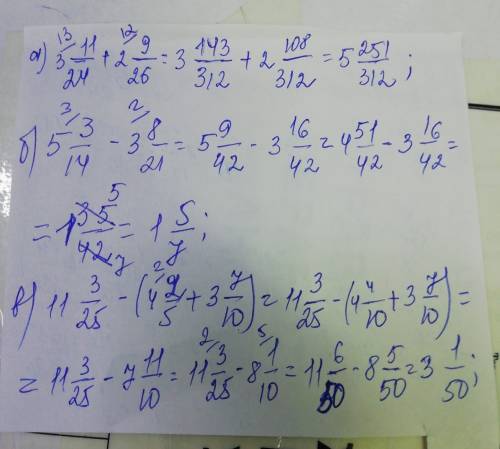 а) 3 13/ 11/24 + 2 12/ 9/26 = 3 143/312 + 2 108/312 = 5 251/312;
б) 5 3/ 3/14 - 3 2/ 8/21 = 5 9/42 - 3 16/42 = 4 51/42 - 3 16/42 =
= 1 35/42 5 7 = 1 5/7;
в) 11 3/25 - (4 2/ 2/5 + 3 7/10) = 11 3/25 - (4 4/10 + 3 7/10) =
= 11 3/25 - 7 11/10 = 11 2/ 3/25 - 8 5/ 1/10 = 11 6/50 - 8 5/50 = 3 1/50;